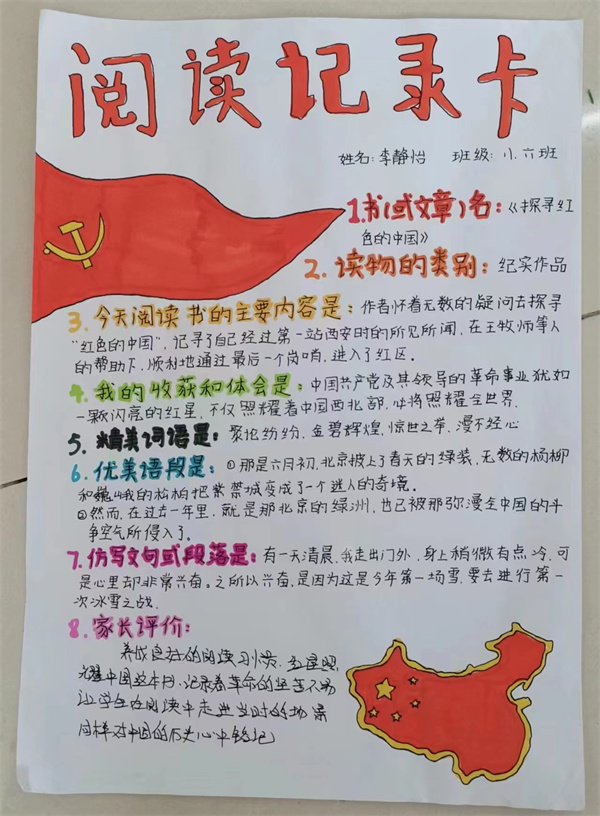 阅读记录卡
姓名:李静怡 班级:八.六班
1.书(或文章)名:《探寻红
色的中国》
2.读物的类别:纪实作品
3.今天阅读书的主要内容是:作者怀着无数的疑问去探寻
“红色的中国”,记寻了自己经过第一站西安时的所见所闻,在王牧师等人
的帮助下,顺利地通过最后一个岗哨,进入了红区。
4.我的收获和体会是:中国共产党及其领导的革命事业犹如
一颗闪亮的红星,不仅照耀着中国西北部,必将照耀全世界.
5.精美词语是:众论纷纷,金碧辉煌,惊世之举,漫不经心
6.优美语段是:①那是六月初,北京披上了春天的绿装,无数的杨柳
和巍峨的松柏把紫禁城变成了一个迷人的奇境。
②然而,在过去一年里,就是那北京的绿洲,也已被那弥漫全中国的斗
争空气所侵入了.
7.仿写文句或段落是:有一天清晨,我走出门外,身上稍微有点冷,可
是心里却非常兴奋。之所以兴奋,是因为这是今年第一场雪,要去进行第一
次冰雪之战.
8.家长评价:
养成良好的阅读习惯,红星照
耀中国这本书,记录着革命的坚苦不易
让学生在阅读中走进当时的场景
同样对中国的历史心中铭记